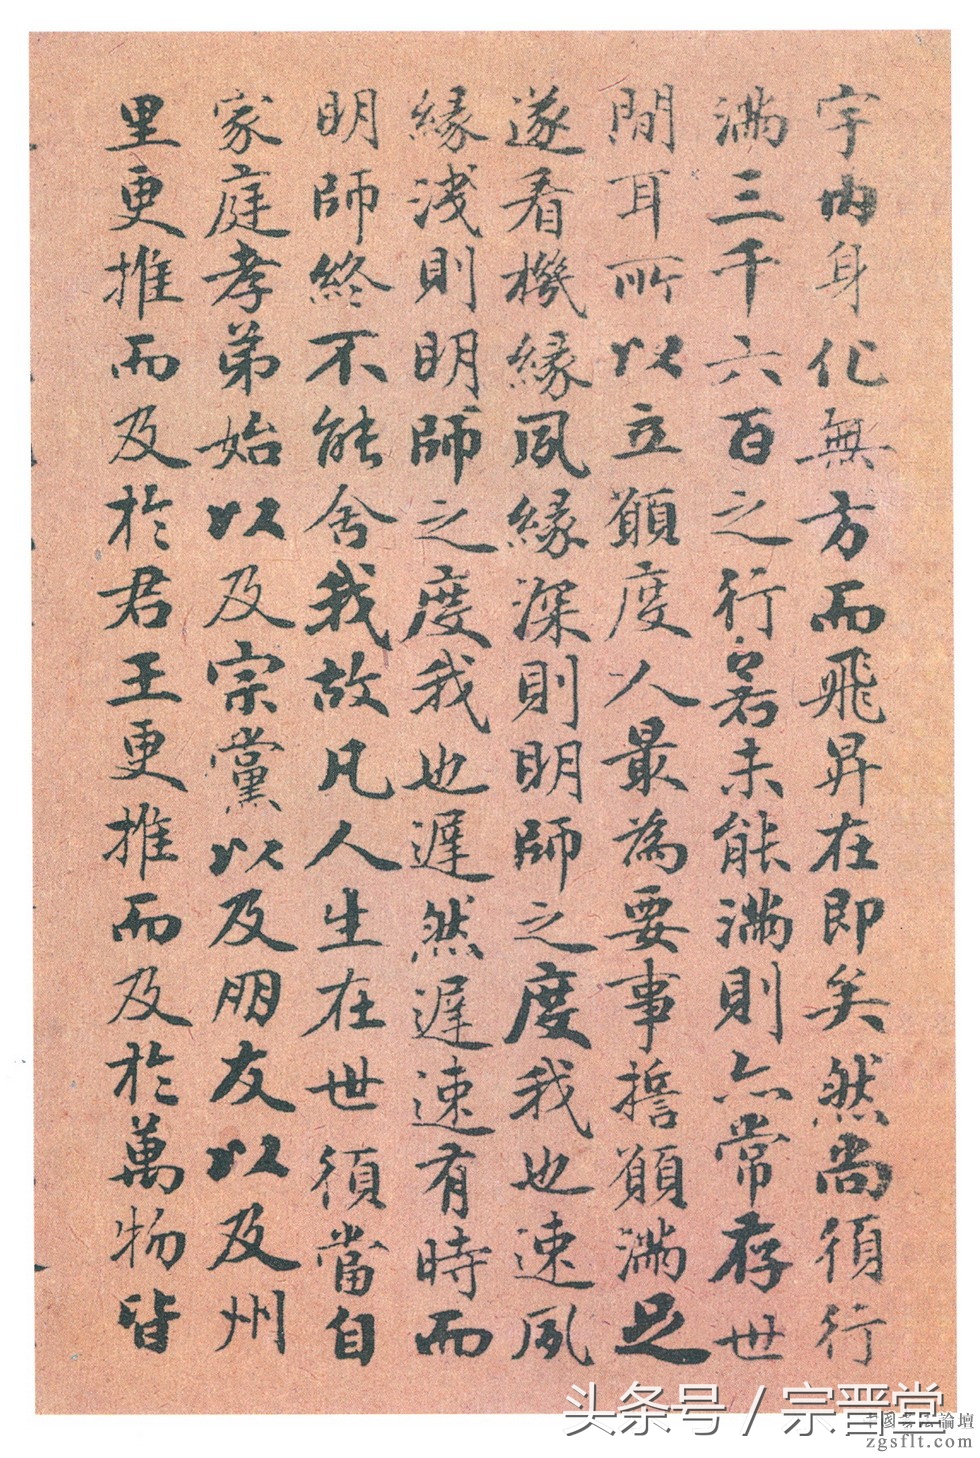 宇内身化無方而飛昇在即矣然尚須行
滿三千六百之行若未能滿則亦常存世
間耳所以立願度人最為要事誓願滿足
遂看機緣夙緣深則明師之度我也速夙
緣淺則明師之度我也遲然遲速有時而
明師終不能舍我故凡人生在世須當自
家庭孝弟始以及宗黨以及朋友以及州
里更推而及於君王更推而及於萬物皆
头条号 / 宗晋堂
中國书法論壇
zgsflt.com